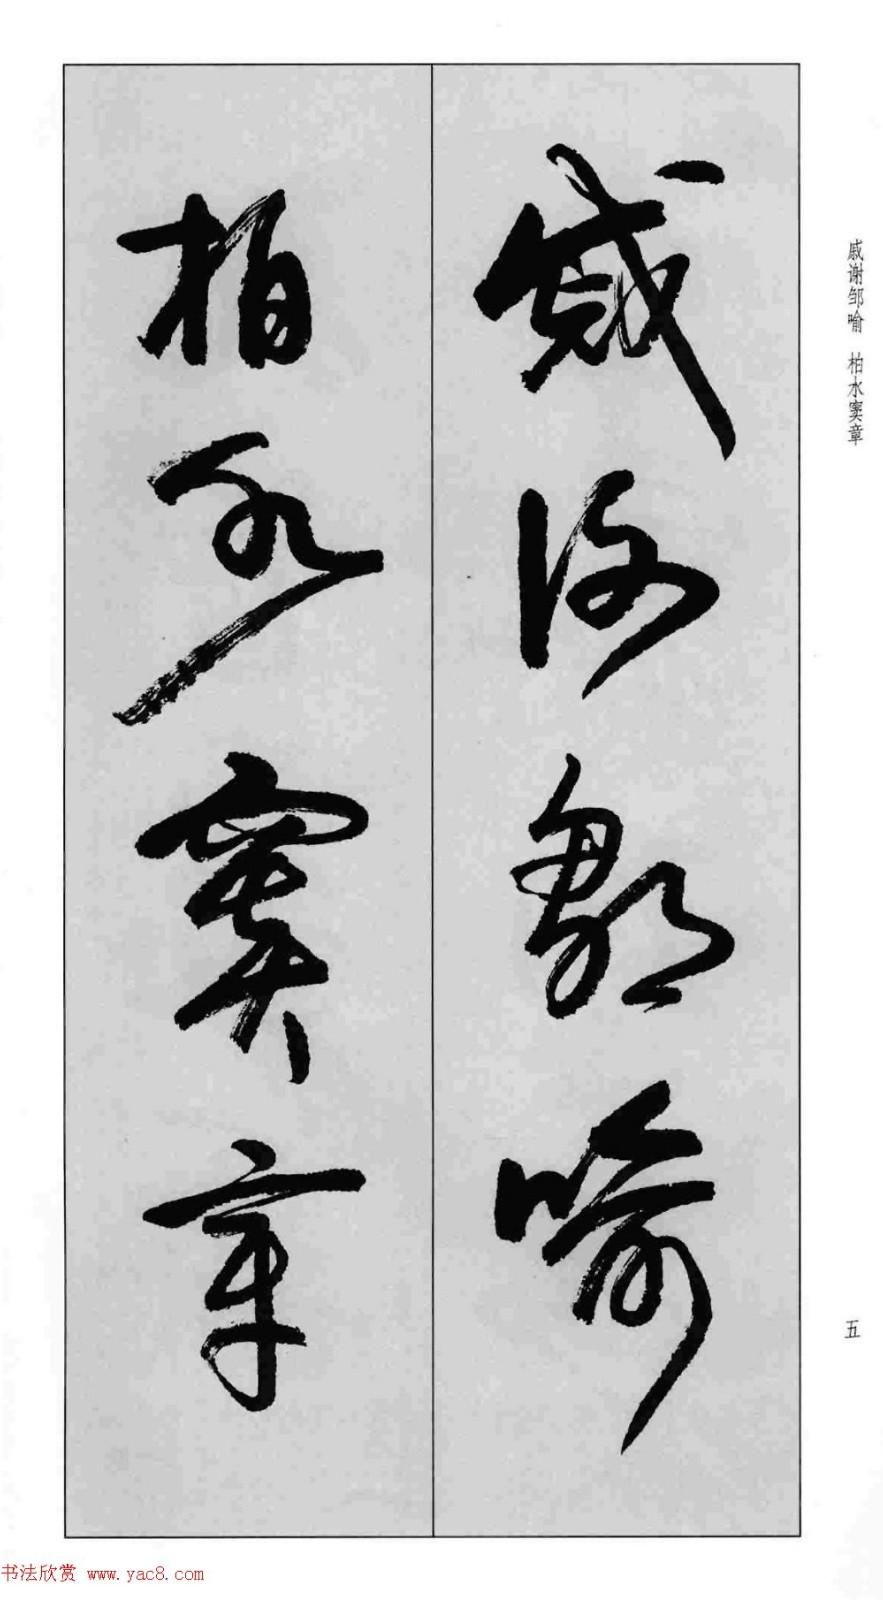 戚谢邹喻
柏水窦章
戚谢邹喻 柏水窦章
五
书法欣赏 www.yac8.com